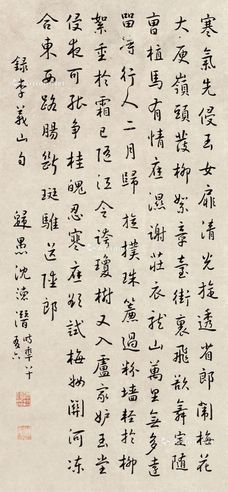 寒氣先侵玉女扉清光旋透省郎闈梅花
大庾嶺頭發柳絮章臺街裏飛欲舞定隨
曹植馬有情應濕謝莊衣龍山萬里無多遠
留待行人二月歸旋撲珠簾過粉墻輕於柳
絮重於霜已隨江令誇瓊樹又入盧家妒玉堂
侵夜可能爭桂魄忍寒應欲試梅妝關河凍
合東西路腸斷斑騅送陸郎
錄李義山句 歸愚沈德潛時年